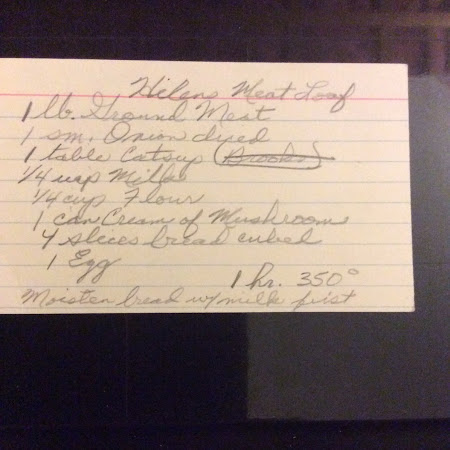 Hilens Meat Loaf
1 lb. Ground Meat
1 sm. Onion diced
1 table Catsup (Brooks)
1/4 cup Milk
1/4 cup Flour
1 can Cream of Mushroom
4 slices bread cubed
1 Egg
1 hr. 350°
Moisten bread w/milk first